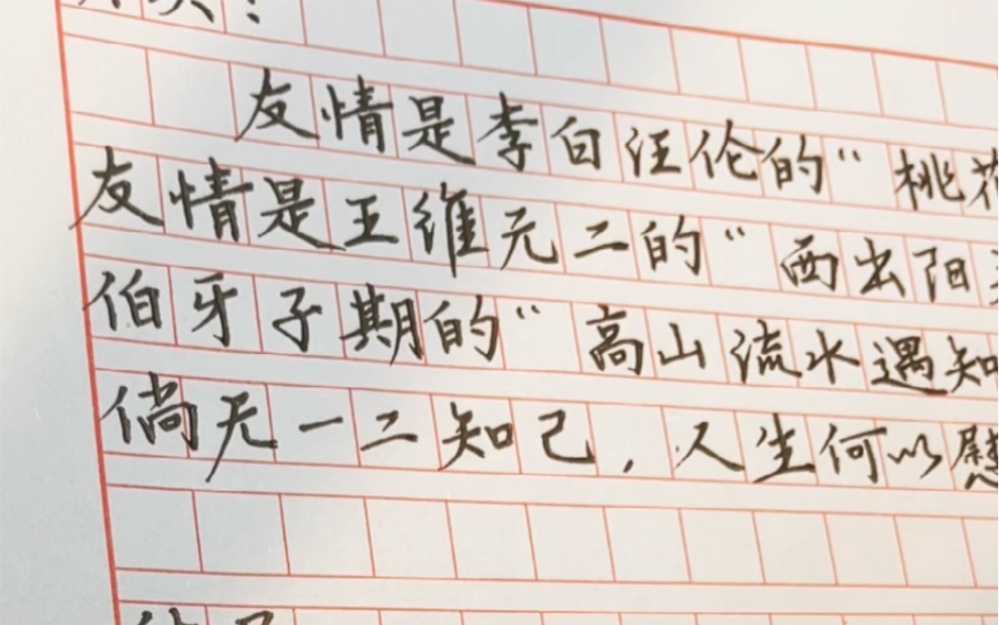 友情是李白汪伦的“桃花
友情是王维元二的“西出阳
伯牙子期的“高山流水遇知
倘无一二知己，人生何以慰